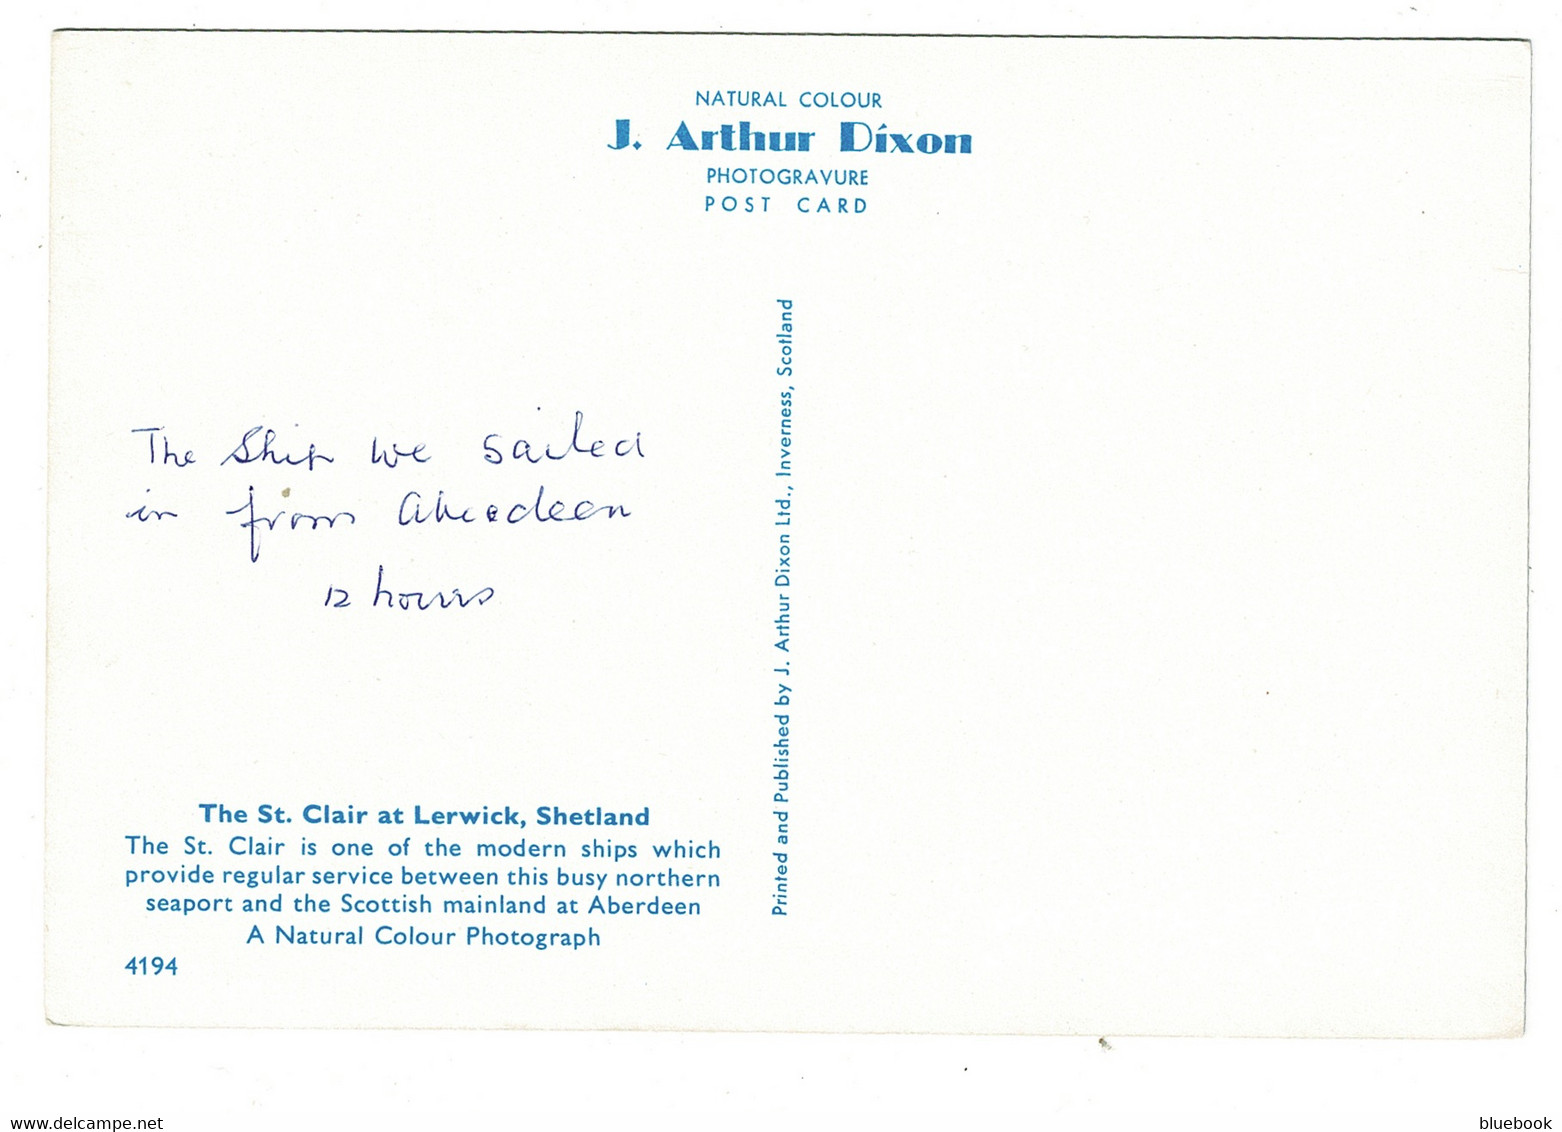 NATURAL COLOUR
J. Arthur Dixon
PHOTOGRAVURE
POST CARD
The Ship we sailed
in from Aberdeen
12 hours
The St. Clair at Lerwick, Shetland
The St. Clair is one of the modern ships which
provide regular service between this busy northern
seaport and the Scottish mainland at Aberdeen
A Natural Colour Photograph
4194
Printed and Published by J. Arthur Dixon Ltd., Inverness, Scotland
www.delcampe.net
bluebook